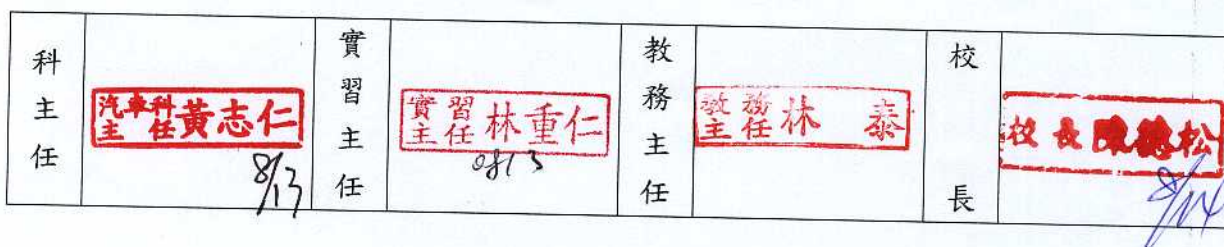 科主任
汽車科主任 黃志仁
8/13
實習主任
實習主任 林重仁
0813
教務主任
教務主任 林 泰
校長
校長 陳德松
8/14